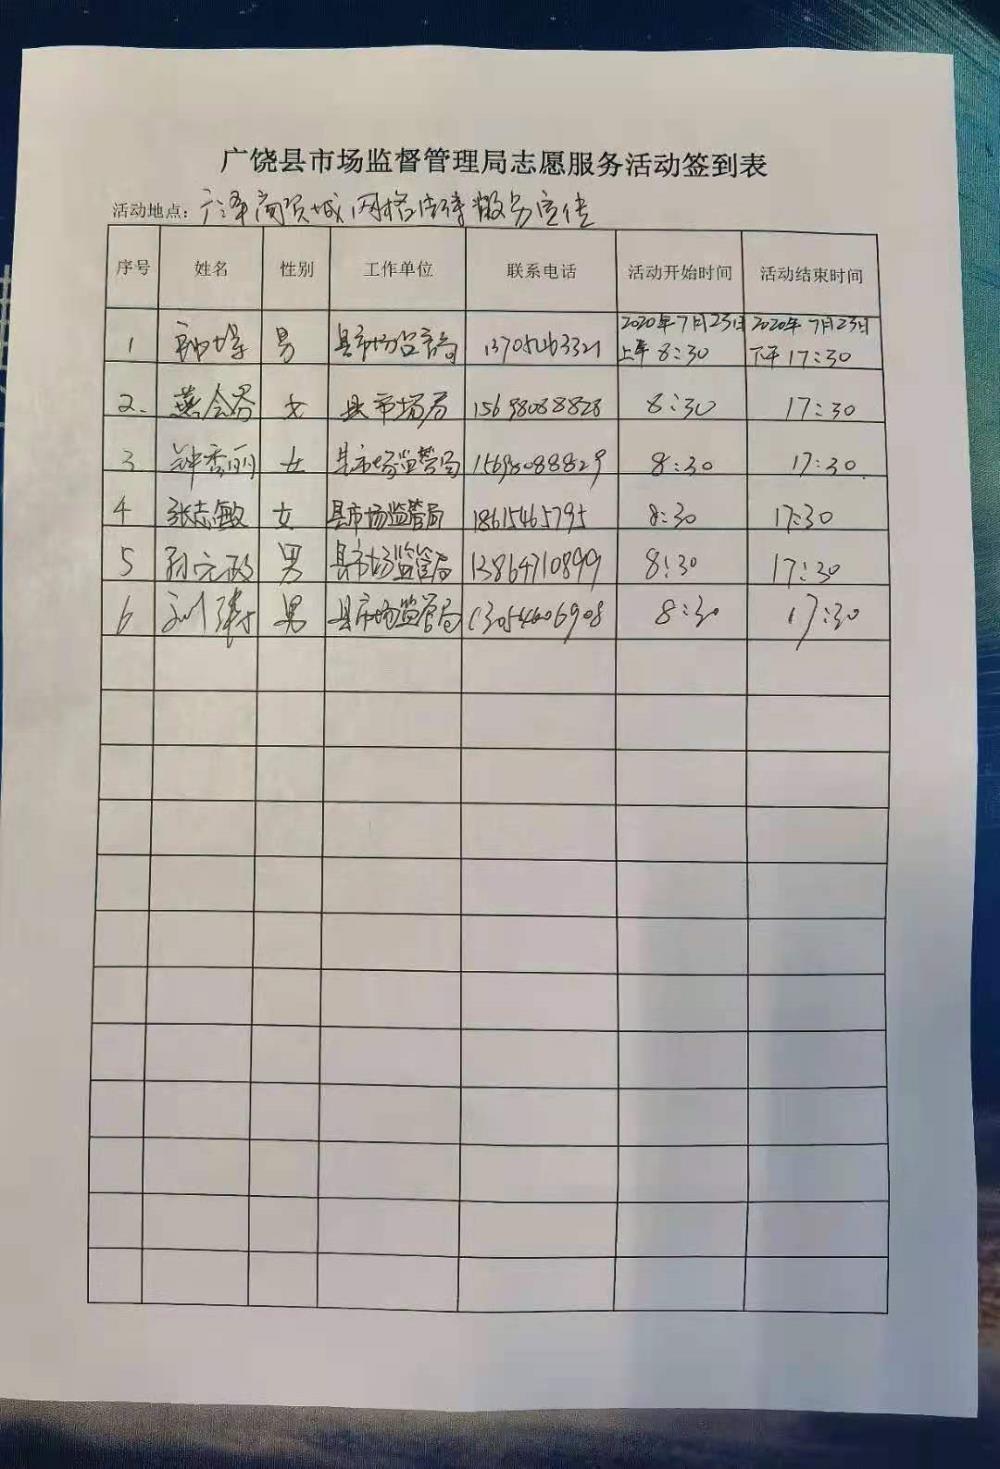 广饶县市场监督管理局志愿服务活动签到表
活动地点：广泽商贸城 网格 宣传
序号 姓名 性别 工作单位 联系电话 活动开始时间 活动结束时间
1 男 县市场监管局 2020年7月23日上午8:30 2020年7月23日下午17:30
2. 女 县市场局 15698088828 8:30 17:30
3 钟秀丽 女 县市场监管局 15698088829 8:30 17:30
4 张志敏 女 县市场监管局 18615465795 8:30 17:30
5 孙元政 男 县市场监管局 13864710899 8:30 17:30
6 男 县市场监管局 13054606908 8:30 17:30